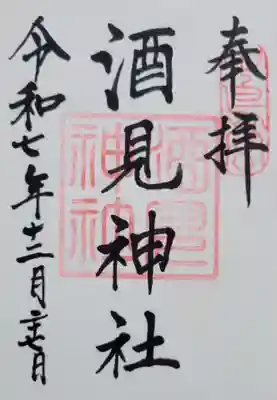 奉拝
酒見神社
令和七年十二月二十七日